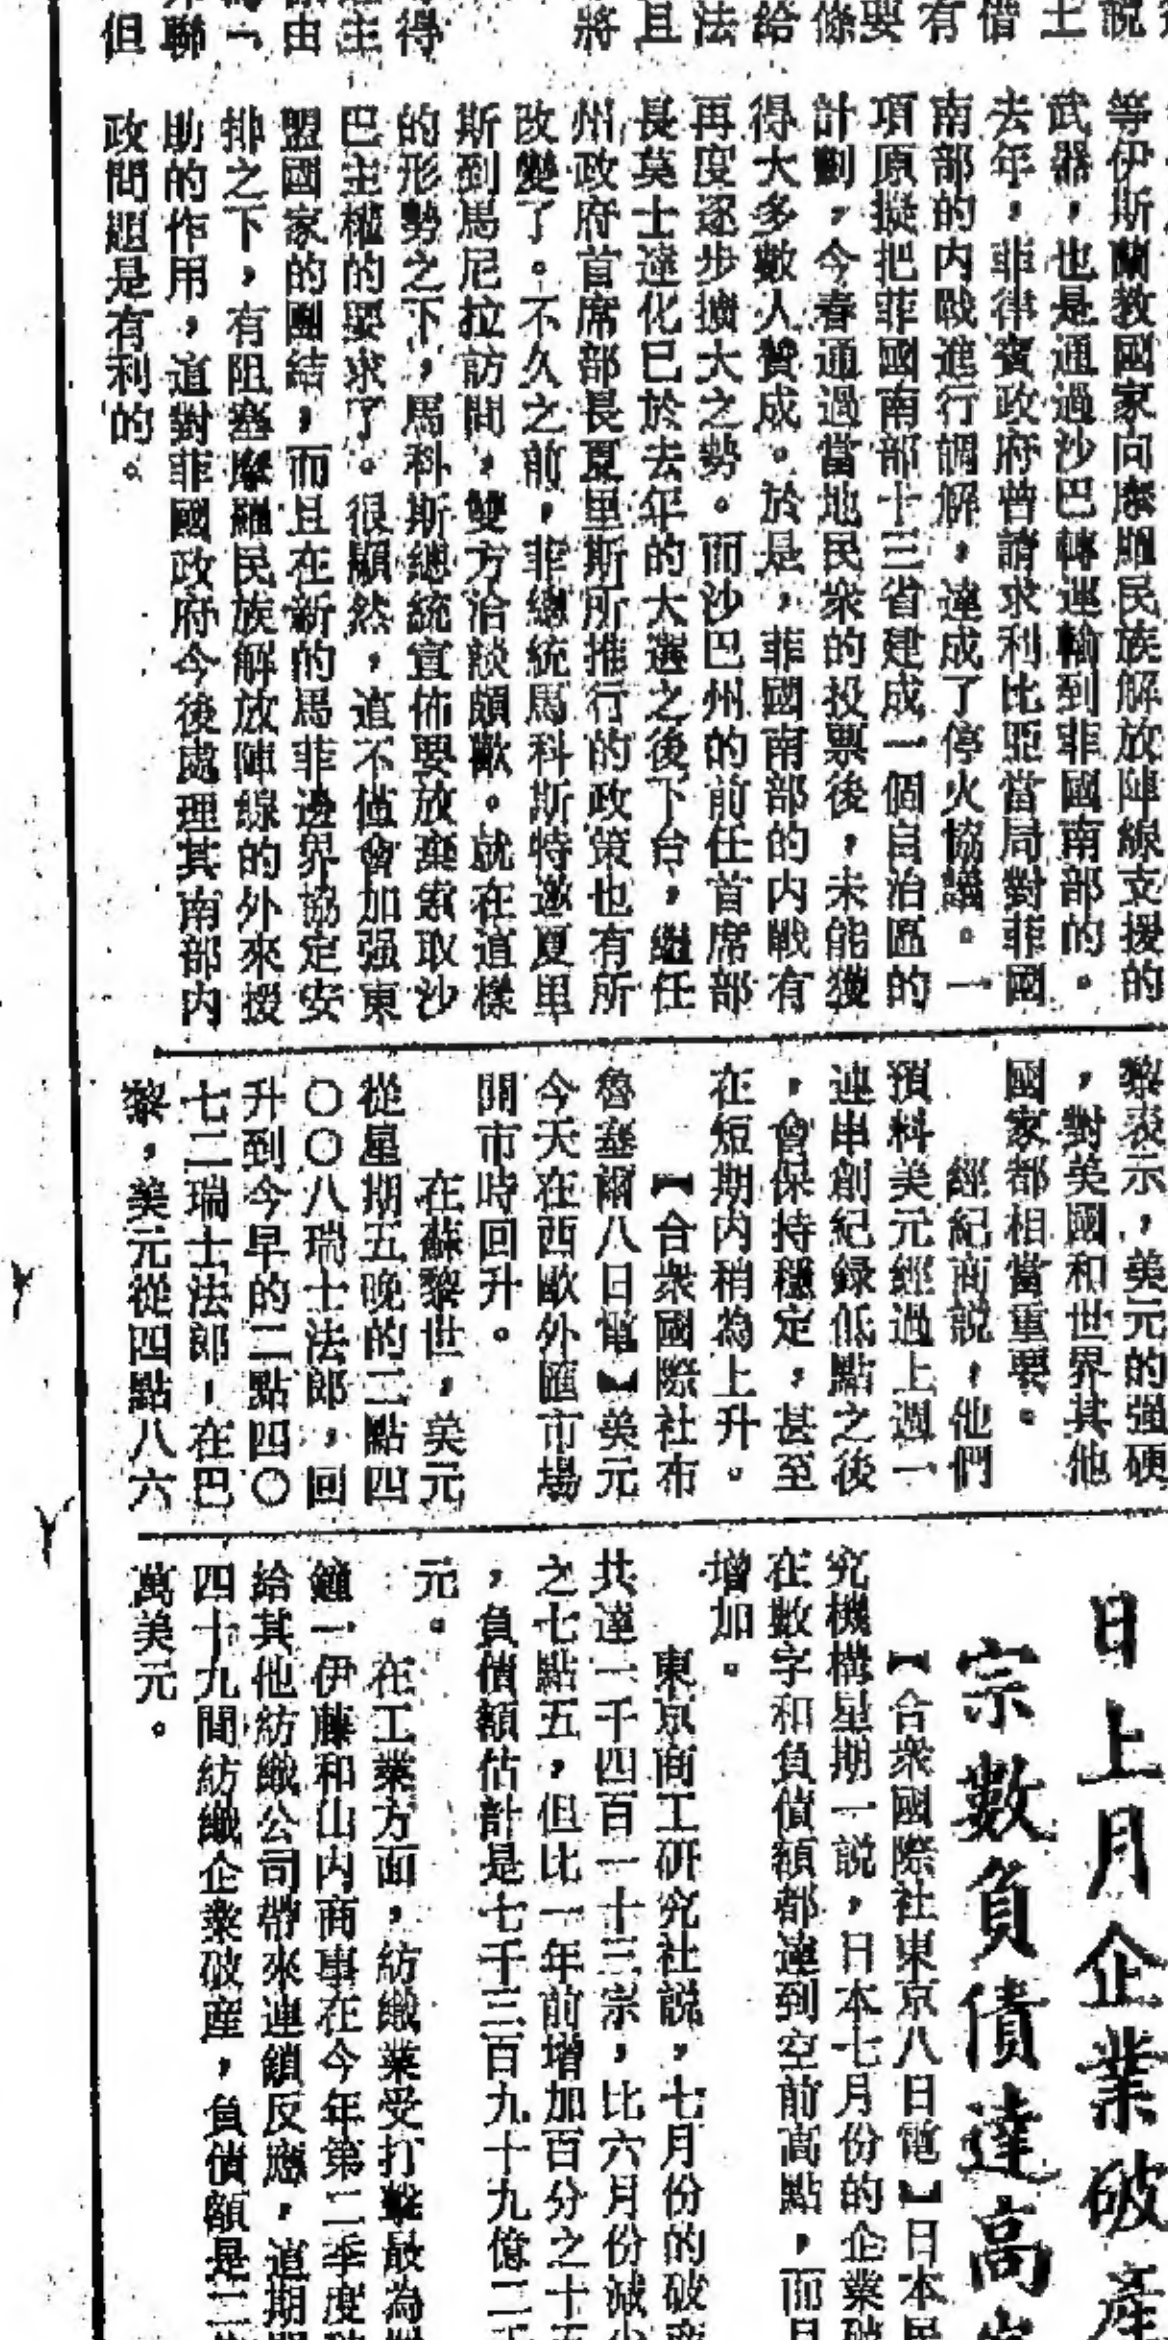 説
借
有
要
條
給
法
且
將
得
主
由
聯
但
等伊斯蘭教國家向摩羅民族解放陣線支援的
武器，也是通過沙巴轉運輸到菲國南部的。
去年，菲律賓政府曾請求利比亞當局對菲國
南部的内戰進行調解，達成了停火協議。一
項原擬把菲國南部十三省建成一個自治區的
計劃，今春通過當地民衆的投票後，未能獲
得大多數人贊成。於是，菲國南部的内戰有
再度逐步擴大之勢。而沙巴州的前任首席部
長莫士達化已於去年的大選之後下台，繼任
州政府首席部長夏里斯所推行的政策也有所
改變了。不久之前，菲總統馬科斯特邀夏里
斯到馬尼拉訪問，雙方洽談頗歡。就在這樣
的形勢之下，馬科斯總統宣佈要放棄索取沙
巴主權的要求了。很顯然，這不僅會加强東
盟國家的團結，而且在新的馬菲邊界協定安
排之下，有阻塞摩羅民族解放陣線的外來援
助的作用，這對菲國政府今後處理其南部内
政問題是有利的。
黎表示，美元的强硬
，對美國和世界其他
國家都相當重要。
經紀商説，他們
預料美元經過上週一
連串創紀録低點之後
，會保持穩定，甚至
在短期内稍為上升。
【合衆國際社布
魯塞爾八日電】美元
今天在西歐外匯市場
開市時回升。
在蘇黎世，美元
從星期五晚的二點四
〇〇八瑞士法郎，回
升到今早的二點四〇
七二瑞士法郎，在巴
黎，美元從四點八六
日上月企業破產
宗數負債達高
【合衆國際社東京八日電】日本民
究機構星期一説，日本七月份的企業破
在數字和負債額都達到空前高點，而且
增加。
東京商工研究社説，七月份的破産
共達一千四百一十三宗，比六月份減少
之七點五，但比一年前增加百分之十五
，負債額估計是七千三百九十九億二千
元。
在工業方面，紡織業受打擊最為
鐘一伊藤和山内商事在今年第二季度
給其他紡織公司帶來連鎖反應，這期間
四十九間紡織企業破産，負債額是三
萬美元。